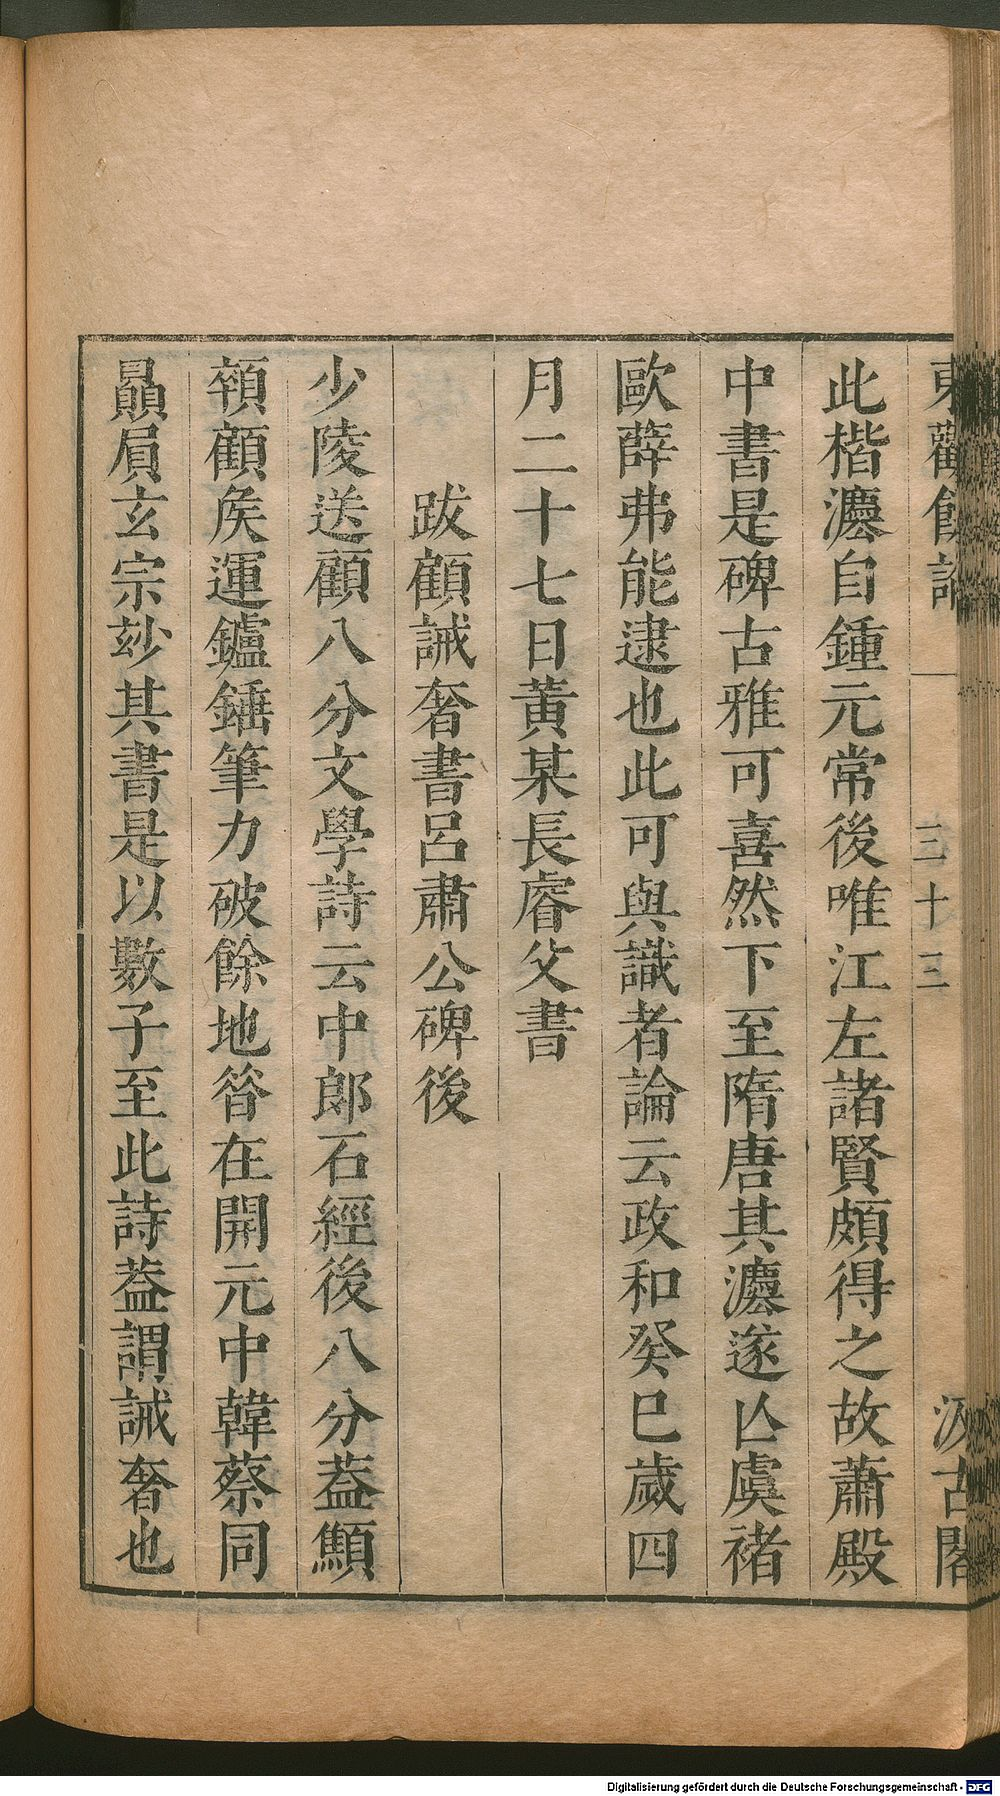 東觀餘論 三十三 汲古閣
此楷灋自鍾元常後唯江左諸賢頗得之故蕭殿
中書是碑古雅可喜然下至隋唐其灋遂亾虞褚
歐薛弗能逮也此可與識者論云政和癸巳歲四
月二十七日黃某長睿父書
跋顧誡奢書呂肅公碑後
少陵送顧八分文學詩云中郎石經後八分葢顦
顇顧矦運鑪錘筆力破餘地昝在開元中韓蔡同
贔屓玄宗玅其書是以數子至此詩葢謂誡奢也
Digitalisierung gefördert durch die Deutsche Forschungsgemeinschaft - DFG